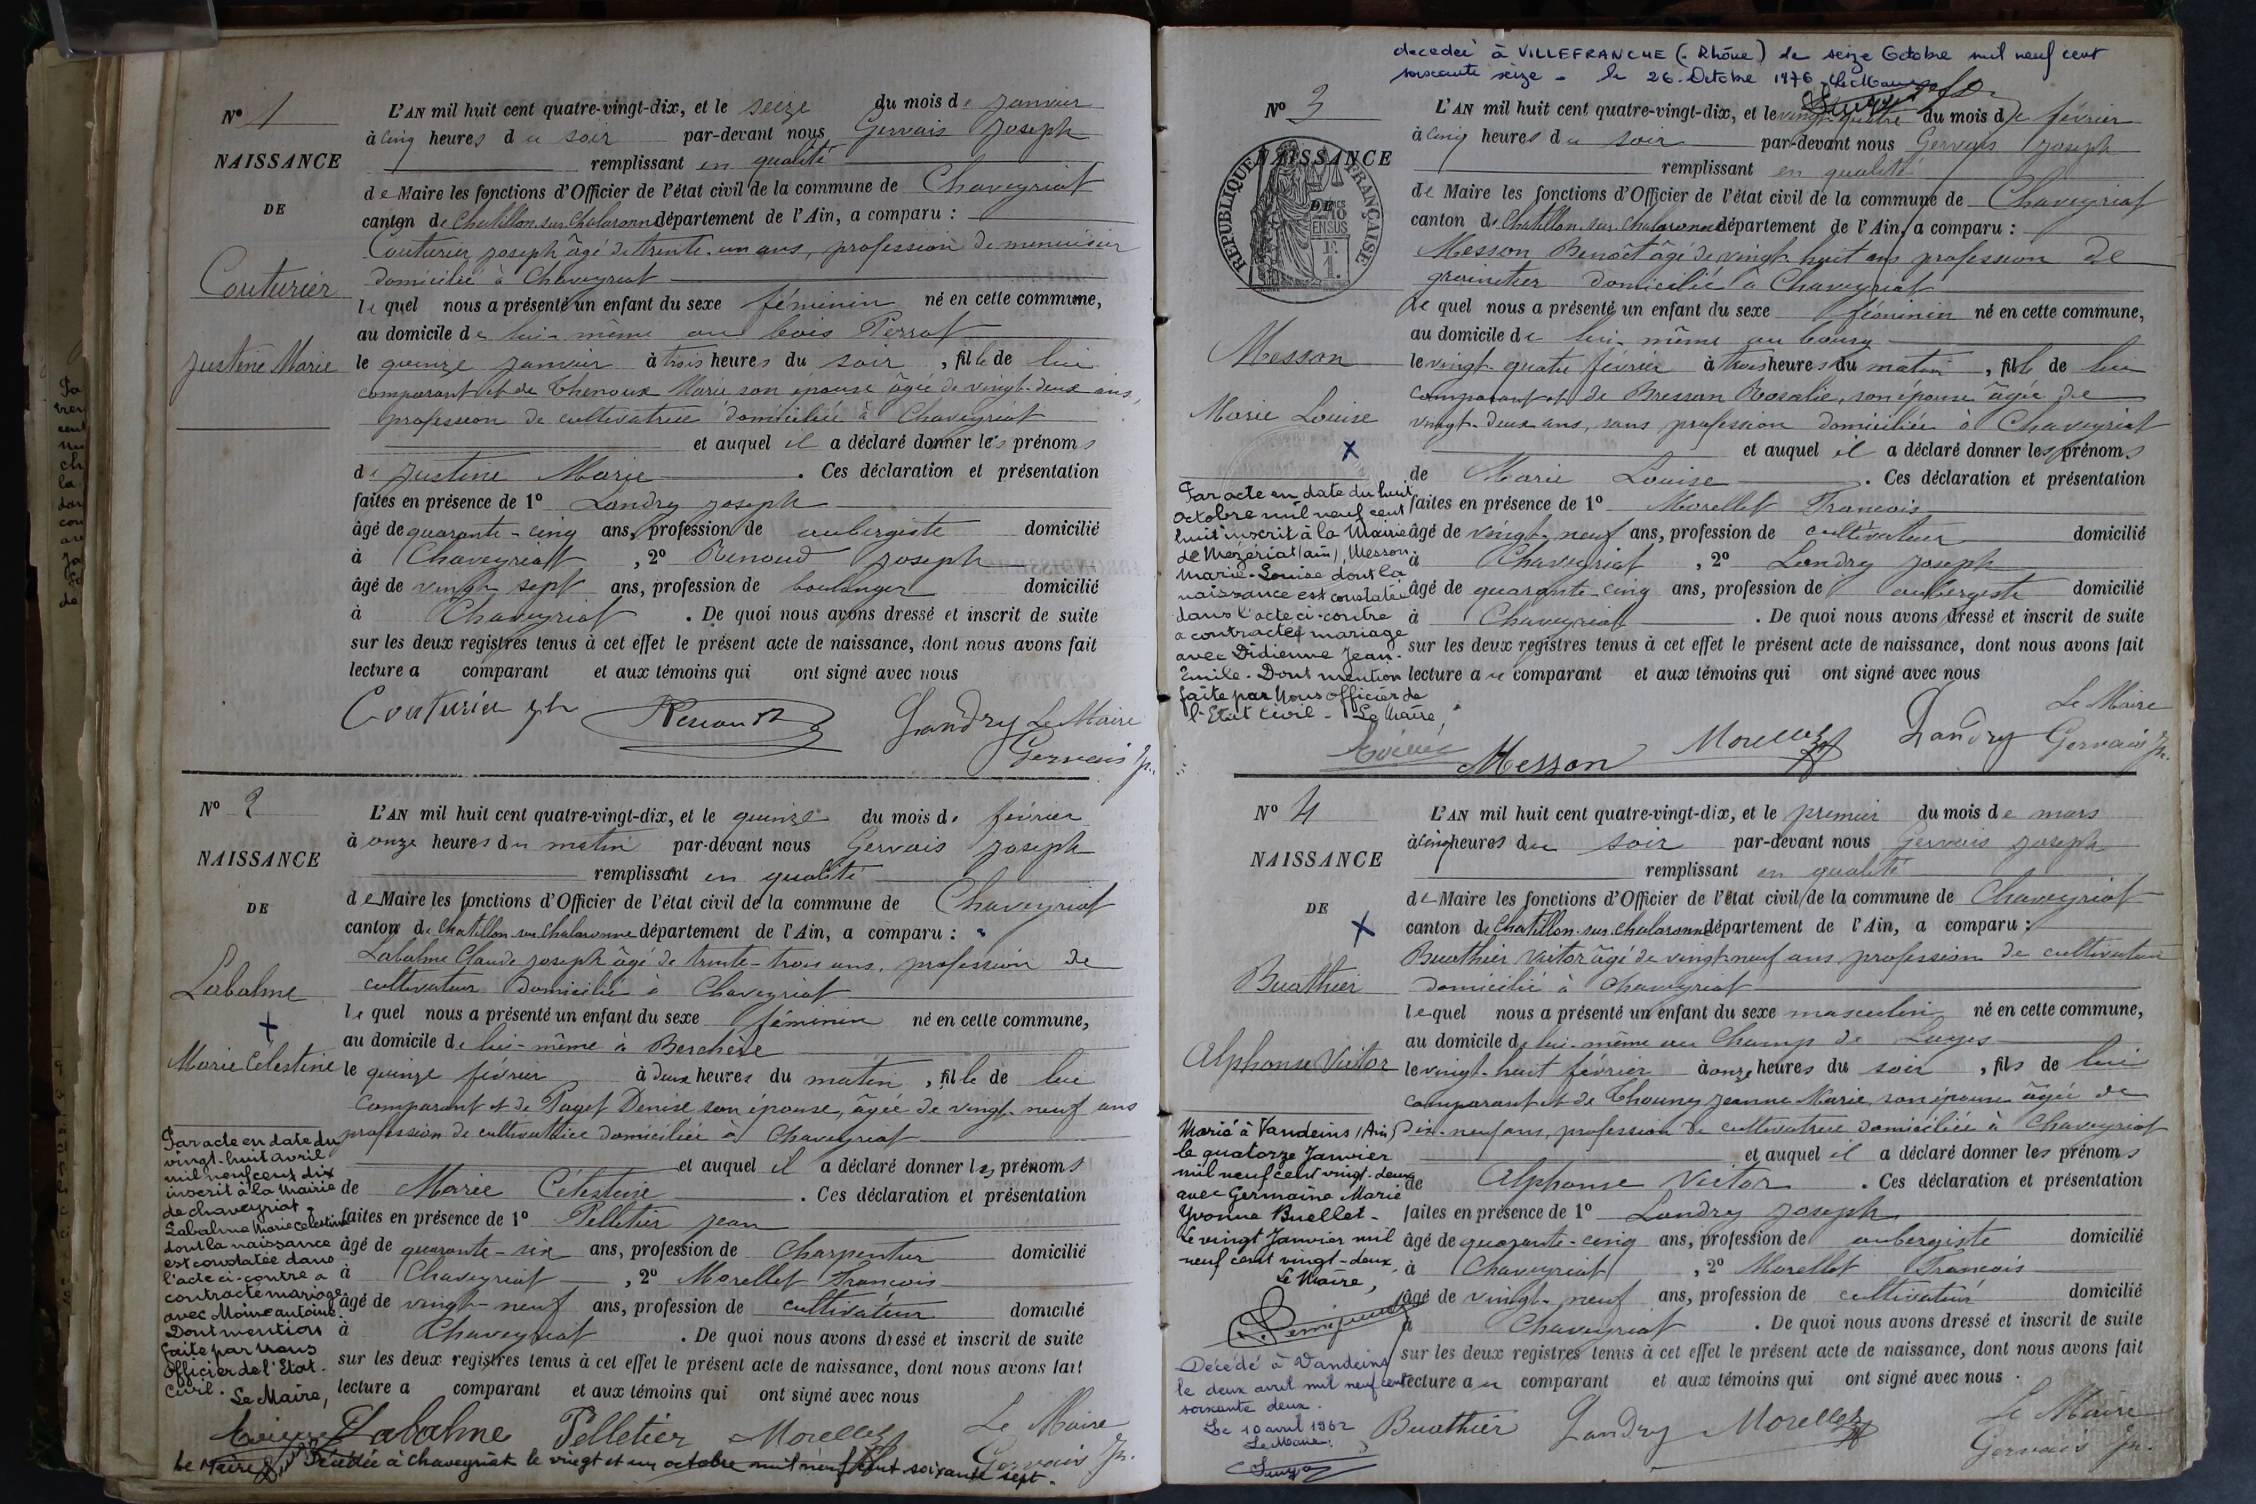 N° 1
NAISSANCE
DE
Couturier
Justine Marie
L'AN mil huit cent quatre-vingt-dix, et le seize du mois de janvier
à cinq heures du soir par-devant nous Gervais Joseph
remplissant en qualité
de Maire les fonctions d'Officier de l'état civil de la commune de Chaveyriat
canton de Chatillon sur Chalaronne département de l'Ain, a comparu :
Couturier Joseph âgé de trente-un ans, profession de menuisier
domicilié à Chaveyriat
lequel nous a présenté un enfant du sexe féminin né en cette commune,
au domicile de lui-même au bois Perrat
le quinze janvier à trois heures du soir, fille de lui
comparant et de Thenoux Marie son épouse âgée de vingt-deux ans,
profession de cultivatrice domiciliée à Chaveyriat
et auquel il a déclaré donner les prénoms
de Justine Marie. Ces déclaration et présentation
faites en présence de 1° Landry Joseph
âgé de quarante-cinq ans, profession de aubergiste domicilié
à Chaveyriat, 2° Renoud Joseph
âgé de vingt sept ans, profession de boulanger domicilié
à Chaveyriat. De quoi nous avons dressé et inscrit de suite
sur les deux registres tenus à cet effet le présent acte de naissance, dont nous avons fait
lecture a comparant et aux témoins qui ont signé avec nous
Couturier Jh Renoud Landry Le Maire
Gervais Jh.
N° 2
NAISSANCE
DE
Labalme
Marie Celestine
L'AN mil huit cent quatre-vingt-dix, et le quinze du mois de février
à onze heures du matin par-devant nous Gervais Joseph
remplissant en qualité
de Maire les fonctions d'Officier de l'état civil de la commune de Chaveyriat
canton de Chatillon sur Chalaronne département de l'Ain, a comparu :
Labalme Claude Joseph âgé de trente-trois ans, profession de
cultivateur domicilié à Chaveyriat
lequel nous a présenté un enfant du sexe féminin né en cette commune,
au domicile de lui-même à Berchère
le quinze février à deux heures du matin, fille de lui
comparant et de Paget Denise son épouse, âgée de vingt-neuf ans
profession de cultivatrice domiciliée à Chaveyriat
et auquel il a déclaré donner les prénoms
de Marie Célestine. Ces déclaration et présentation
faites en présence de 1° Pelletier Jean
âgé de quarante-six ans, profession de Charpentier domicilié
à Chaveyriat, 2° Morellet Francois
âgé de vingt-neuf ans, profession de cultivateur domicilié
à Chaveyriat. De quoi nous avons dressé et inscrit de suite
sur les deux registres tenus à cet effet le présent acte de naissance, dont nous avons fait
lecture a comparant et aux témoins qui ont signé avec nous
Labalme Pelletier Morellet Le Maire
Gervais Jh.
Par acte en date du
vingt-huit avril
mil neuf cent dix
inscrit à la Mairie
de chaveyriat,
Labalme Marie celestine
dont la naissance
est constatée dans
l'acte ci-contre a
contracté mariage
avec Moine antoine.
Dont mention
faite par Nous
officier de l'Etat-
civil. Le Maire,
Décédée à Chaveyriat le vingt et un octobre mil neuf cent soixante sept.
Le Maire
decedée à VILLEFRANCHE (Rhône) le seize Octobre mil neuf cent
soixante seize - le 26 Octobre 1976 Le Maire
N° 3
NAISSANCE
DE
RÉPUBLIQUE FRANÇAISE
Messon
Marie Louise
L'AN mil huit cent quatre-vingt-dix, et le vingt-quatre du mois de février
à cinq heures du soir par-devant nous Gervais Joseph
remplissant en qualité
de Maire les fonctions d'Officier de l'état civil de la commune de Chaveyriat
canton de Chatillon sur Chalaronne département de l'Ain, a comparu :
Messon Benoît âgé de vingt huit ans profession de
grainetier domicilié à Chaveyriat
lequel nous a présenté un enfant du sexe féminin né en cette commune,
au domicile de lui-même au bourg
le vingt-quatre février à trois heures du matin, fille de lui
comparant et de Bressan Rosalie, son épouse âgée de
vingt-deux ans, sans profession domiciliée à Chaveyriat
et auquel il a déclaré donner les prénoms
de Marie Louise. Ces déclaration et présentation
faites en présence de 1° Morellet Francois
âgé de vingt-neuf ans, profession de cultivateur domicilié
à Chaveyriat, 2° Landry Joseph
âgé de quarante-cinq ans, profession de aubergiste domicilié
à Chaveyriat. De quoi nous avons dressé et inscrit de suite
sur les deux registres tenus à cet effet le présent acte de naissance, dont nous avons fait
lecture au comparant et aux témoins qui ont signé avec nous
Messon Morellet Landry Le Maire
Gervais Jh.
Par acte en date du huit
Octobre mil neuf cent
huit inscrit à la Mairie
de Mezériat (ain), Messon
Marie-Louise dont la
naissance est constatée
dans l'acte ci-contre
a contracté mariage
avec Didienne Jean-
Emile. Dont mention
faite par Nous officier de
l'Etat civil - Le Maire,
N° 4
NAISSANCE
DE
Buathier
Alphonse Victor
L'AN mil huit cent quatre-vingt-dix, et le premier du mois de mars
à cinq heures du soir par-devant nous Gervais Joseph
remplissant en qualité
de Maire les fonctions d'Officier de l'état civil de la commune de Chaveyriat
canton de Chatillon-sur-Chalaronne département de l'Ain, a comparu :
Buathier Victor âgé de vingt-neuf ans, profession de cultivateur
domicilié à Chaveyriat
lequel nous a présenté un enfant du sexe masculin né en cette commune,
au domicile de lui-même au Champ de Layes
le vingt-huit février à onze heures du soir, fils de lui
comparant et de Thouny Jeanne Marie, son épouse âgée de
dix-neuf ans, profession de cultivatrice domiciliée à Chaveyriat
et auquel il a déclaré donner les prénoms
de Alphonse Victor. Ces déclaration et présentation
faites en présence de 1° Landry Joseph
âgé de quarante-cinq ans, profession de aubergiste domicilié
à Chaveyriat, 2° Morellet Francois
âgé de vingt-neuf ans, profession de cultivateur domicilié
à Chaveyriat. De quoi nous avons dressé et inscrit de suite
sur les deux registres tenus à cet effet le présent acte de naissance, dont nous avons fait
lecture au comparant et aux témoins qui ont signé avec nous.
Buathier Landry Morellet Le Maire
Gervais Jh.
Marié à Vandeins (Ain)
le quatorze Janvier
mil neuf cent vingt-deux
avec Germaine Marie
Yvonne Buellet-
Le vingt Janvier mil
neuf cent vingt-deux,
Le Maire,
Décédé à Vandeins
le deux avril mil neuf cent
soixante deux.
Le 10 avril 1962
Le Maire,